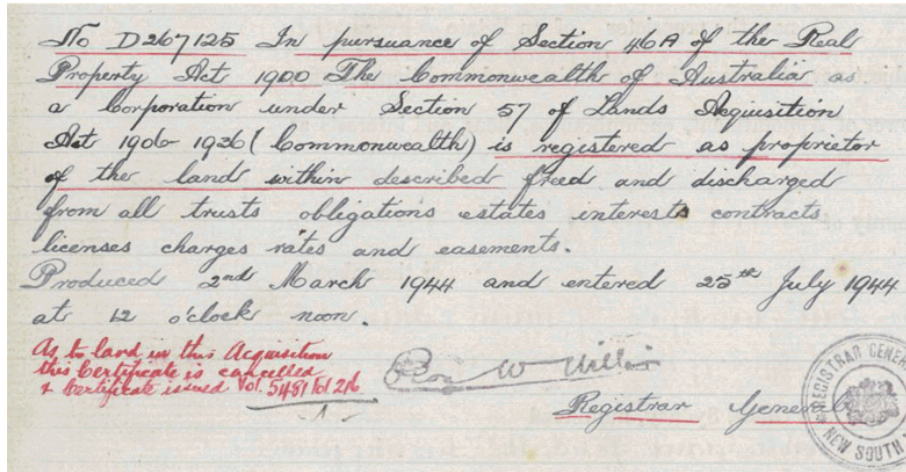 No D267125 In pursuance of Section 46A of the Real
Property Act 1900 The Commonwealth of Australia as
a Corporation under Section 57 of Lands Acquisition
Act 1906-1926 (Commonwealth) is registered as proprietor
of the land within described freed and discharged
from all trusts obligations estates interests contracts
licenses charges rates and easements.
Produced 2nd March 1944 and entered 25th July 1944
at 12 o'clock noon.
As to land in this Acquisition
this Certificate is cancelled
& Certificate issued Vol. 5481 fol 216
W
Registrar General
REGISTRAR GENER
NEW SOUTH